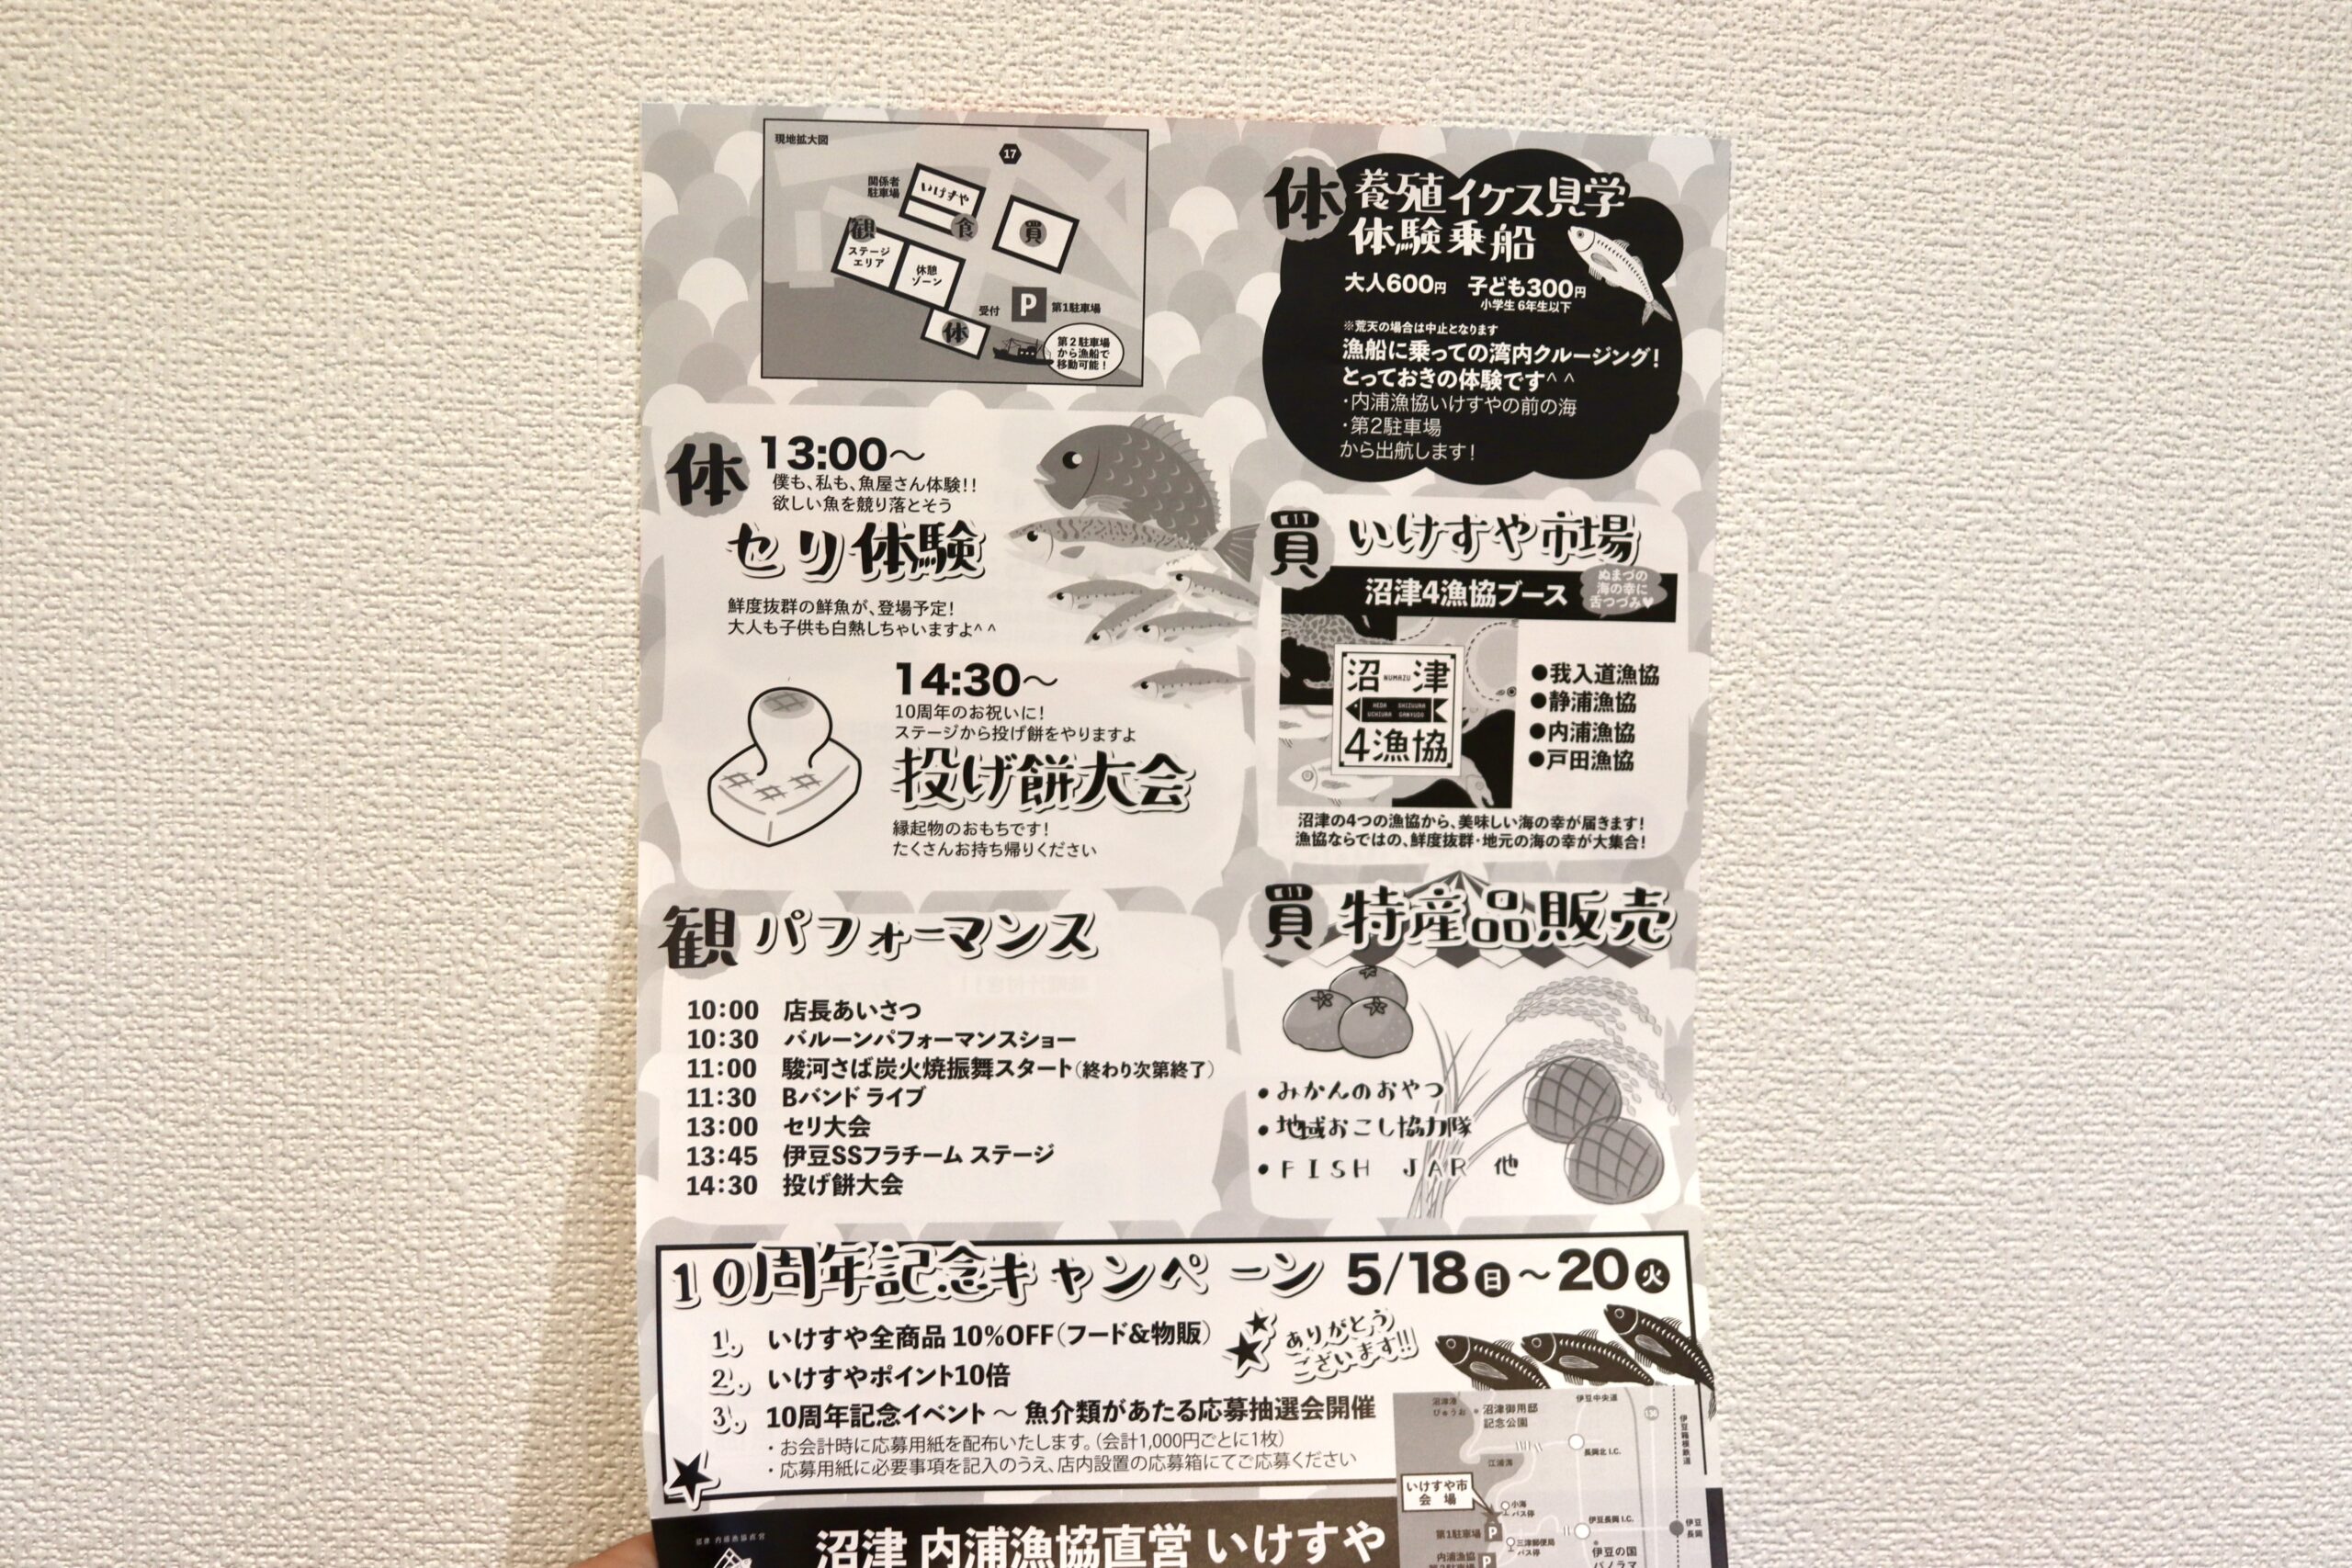 現地拡大図
17
関係者
駐車場
いけすや
観
食
買
ステージ
エリア
休憩
ゾーン
受付
P
第1駐車場
体
第2駐車場
から漁船で
移動可能！
体
養殖イケス見学
体験乗船
大人600円 子ども300円
小学生6年生以下
※荒天の場合は中止となります
漁船に乗っての湾内クルージング！
とっておきの体験です^ ^
・内浦漁協いけすやの前の海
・第2駐車場
から出航します！
体
13:00～
僕も、私も、魚屋さん体験！！
欲しい魚を競り落とそう
セリ体験
鮮度抜群の鮮魚が、登場予定！
大人も子供も白熱しちゃいますよ^ ^
14:30～
10周年のお祝いに！
ステージから投げ餅をやりますよ
投げ餅大会
縁起物のおもちです！
たくさんお持ち帰りください
買
いけすや市場
沼津4漁協ブース
ぬまづの
海の幸に
舌つづみ♥
沼 NUMAZU 津
HEDA SHIZUURA
UCHIURA GANYUDO
4漁協
●我入道漁協
●静浦漁協
●内浦漁協
●戸田漁協
沼津の4つの漁協から、美味しい海の幸が届きます！
漁協ならではの、鮮度抜群・地元の海の幸が大集合！
観 パフォーマンス
10:00 店長あいさつ
10:30 バルーンパフォーマンスショー
11:00 駿河さば炭火焼振舞スタート（終わり次第終了）
11:30 Bバンド ライブ
13:00 セリ大会
13:45 伊豆SSフラチーム ステージ
14:30 投げ餅大会
買 特産品販売
・みかんのおやつ
・地域おこし協力隊
・FISH JAR 他
10周年記念キャンペーン 5/18日～20火
1. いけすや全商品 10%OFF（フード&物販）
2. いけすやポイント10倍
3. 10周年記念イベント ～ 魚介類があたる応募抽選会開催
・お会計時に応募用紙を配布いたします。（会計1,000円ごとに1枚）
・応募用紙に必要事項を記入のうえ、店内設置の応募箱にてご応募ください
ありがとう
ございます!!
沼津 内浦漁協直営 いけすや
沼津港
びゅうお
沼津御用邸
記念公園
伊豆中央道
136
伊豆箱根鉄道
長岡北I.C.
江浦湾
いけすや市
会 場
小海
バス停
第1駐車場
P
三津郵便局
バス停
伊豆長岡I.C.
伊豆
長岡
内浦漁協
P
伊豆の国
パノラマ